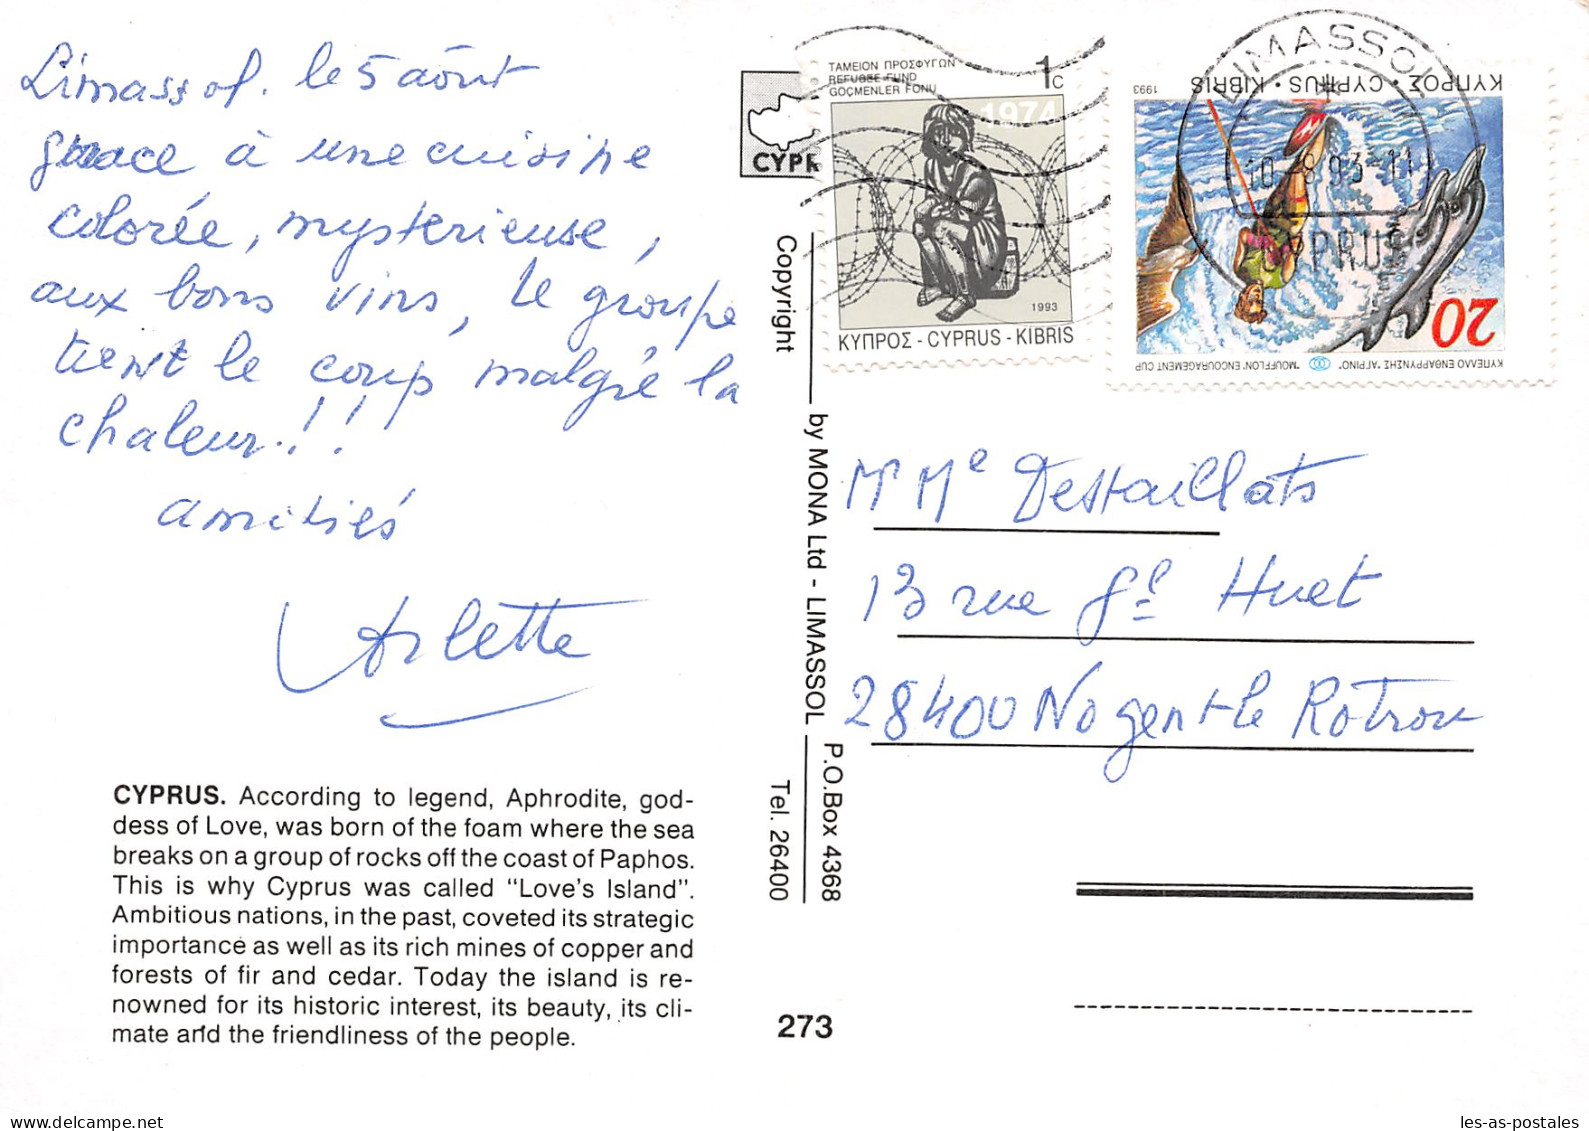 Limassol. le 5 août
grace à une cuisine
colorée, mysterieuse,
aux bons vins, le groupe
tient le coup malgré la
chaleur.!!
amitiés
Arlette
CYPRUS. According to legend, Aphrodite, god-
dess of Love, was born of the foam where the sea
breaks on a group of rocks off the coast of Paphos.
This is why Cyprus was called "Love's Island".
Ambitious nations, in the past, coveted its strategic
importance as well as its rich mines of copper and
forests of fir and cedar. Today the island is re-
nowned for its historic interest, its beauty, its cli-
mate and the friendliness of the people.
CYPR
Copyright
by MONA Ltd - LIMASSOL
P.O.Box 4368
Tel. 26400
273
ΤΑΜΕΙΟΝ ΠΡΟΣΦΥΓΩΝ
REFUGEE FUND
GÖÇMENLER FONU
1c
1974
1993
ΚΥΠΡΟΣ - CYPRUS - KIBRIS
ΚΥΠΡΟΣ · CYPRUS · KIBRIS
1993
20
ΚΥΠΕΛΛΟ ΕΝΘΑΡΡΥΝΣΗΣ "ΑΓΡΙΝΟ"
"MOUFFLON" ENCOURAGEMENT CUP
LIMASSOL
10-8 93-11
CYPRUS
Mr Me Destaillats
13 rue Gl Huet
28400 Nogent le Rotrou
les-as-postales
delcampe.net